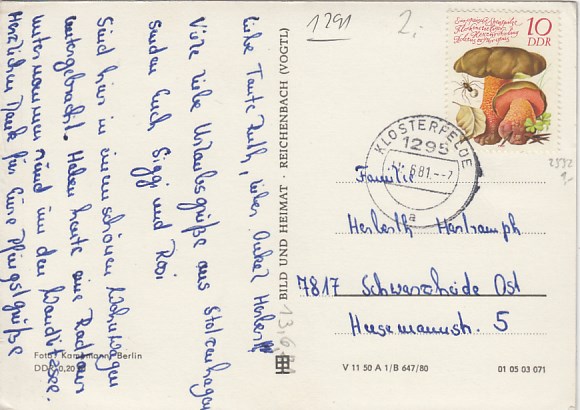 1291
2.-
10
DDR
KLOSTERFELDE
1295
6.81.--7
a
2992
liebe Tante Ruth, lieber Onkel Herbert!
Viele liebe Urlaubsgrüße aus Stolzenhagen
senden Euch Siggi und Rosi
Sind hier in einem schönen Wohnwagen
untergebracht. Haben heute eine Radtour
unternommen rund um den Wandlitzsee.
Herzlichen Dank für Eure Pfingstgrüße
BILD UND HEIMAT · REICHENBACH (VOGTL)
13.6.81
Familie
Herberth Hartramph
7817 Schwarzheide Ost
Husemannstr. 5
Foto: Kampmann, Berlin
DDR 0,20
V 11 50 A 1/B 647/80
01 05 03 071